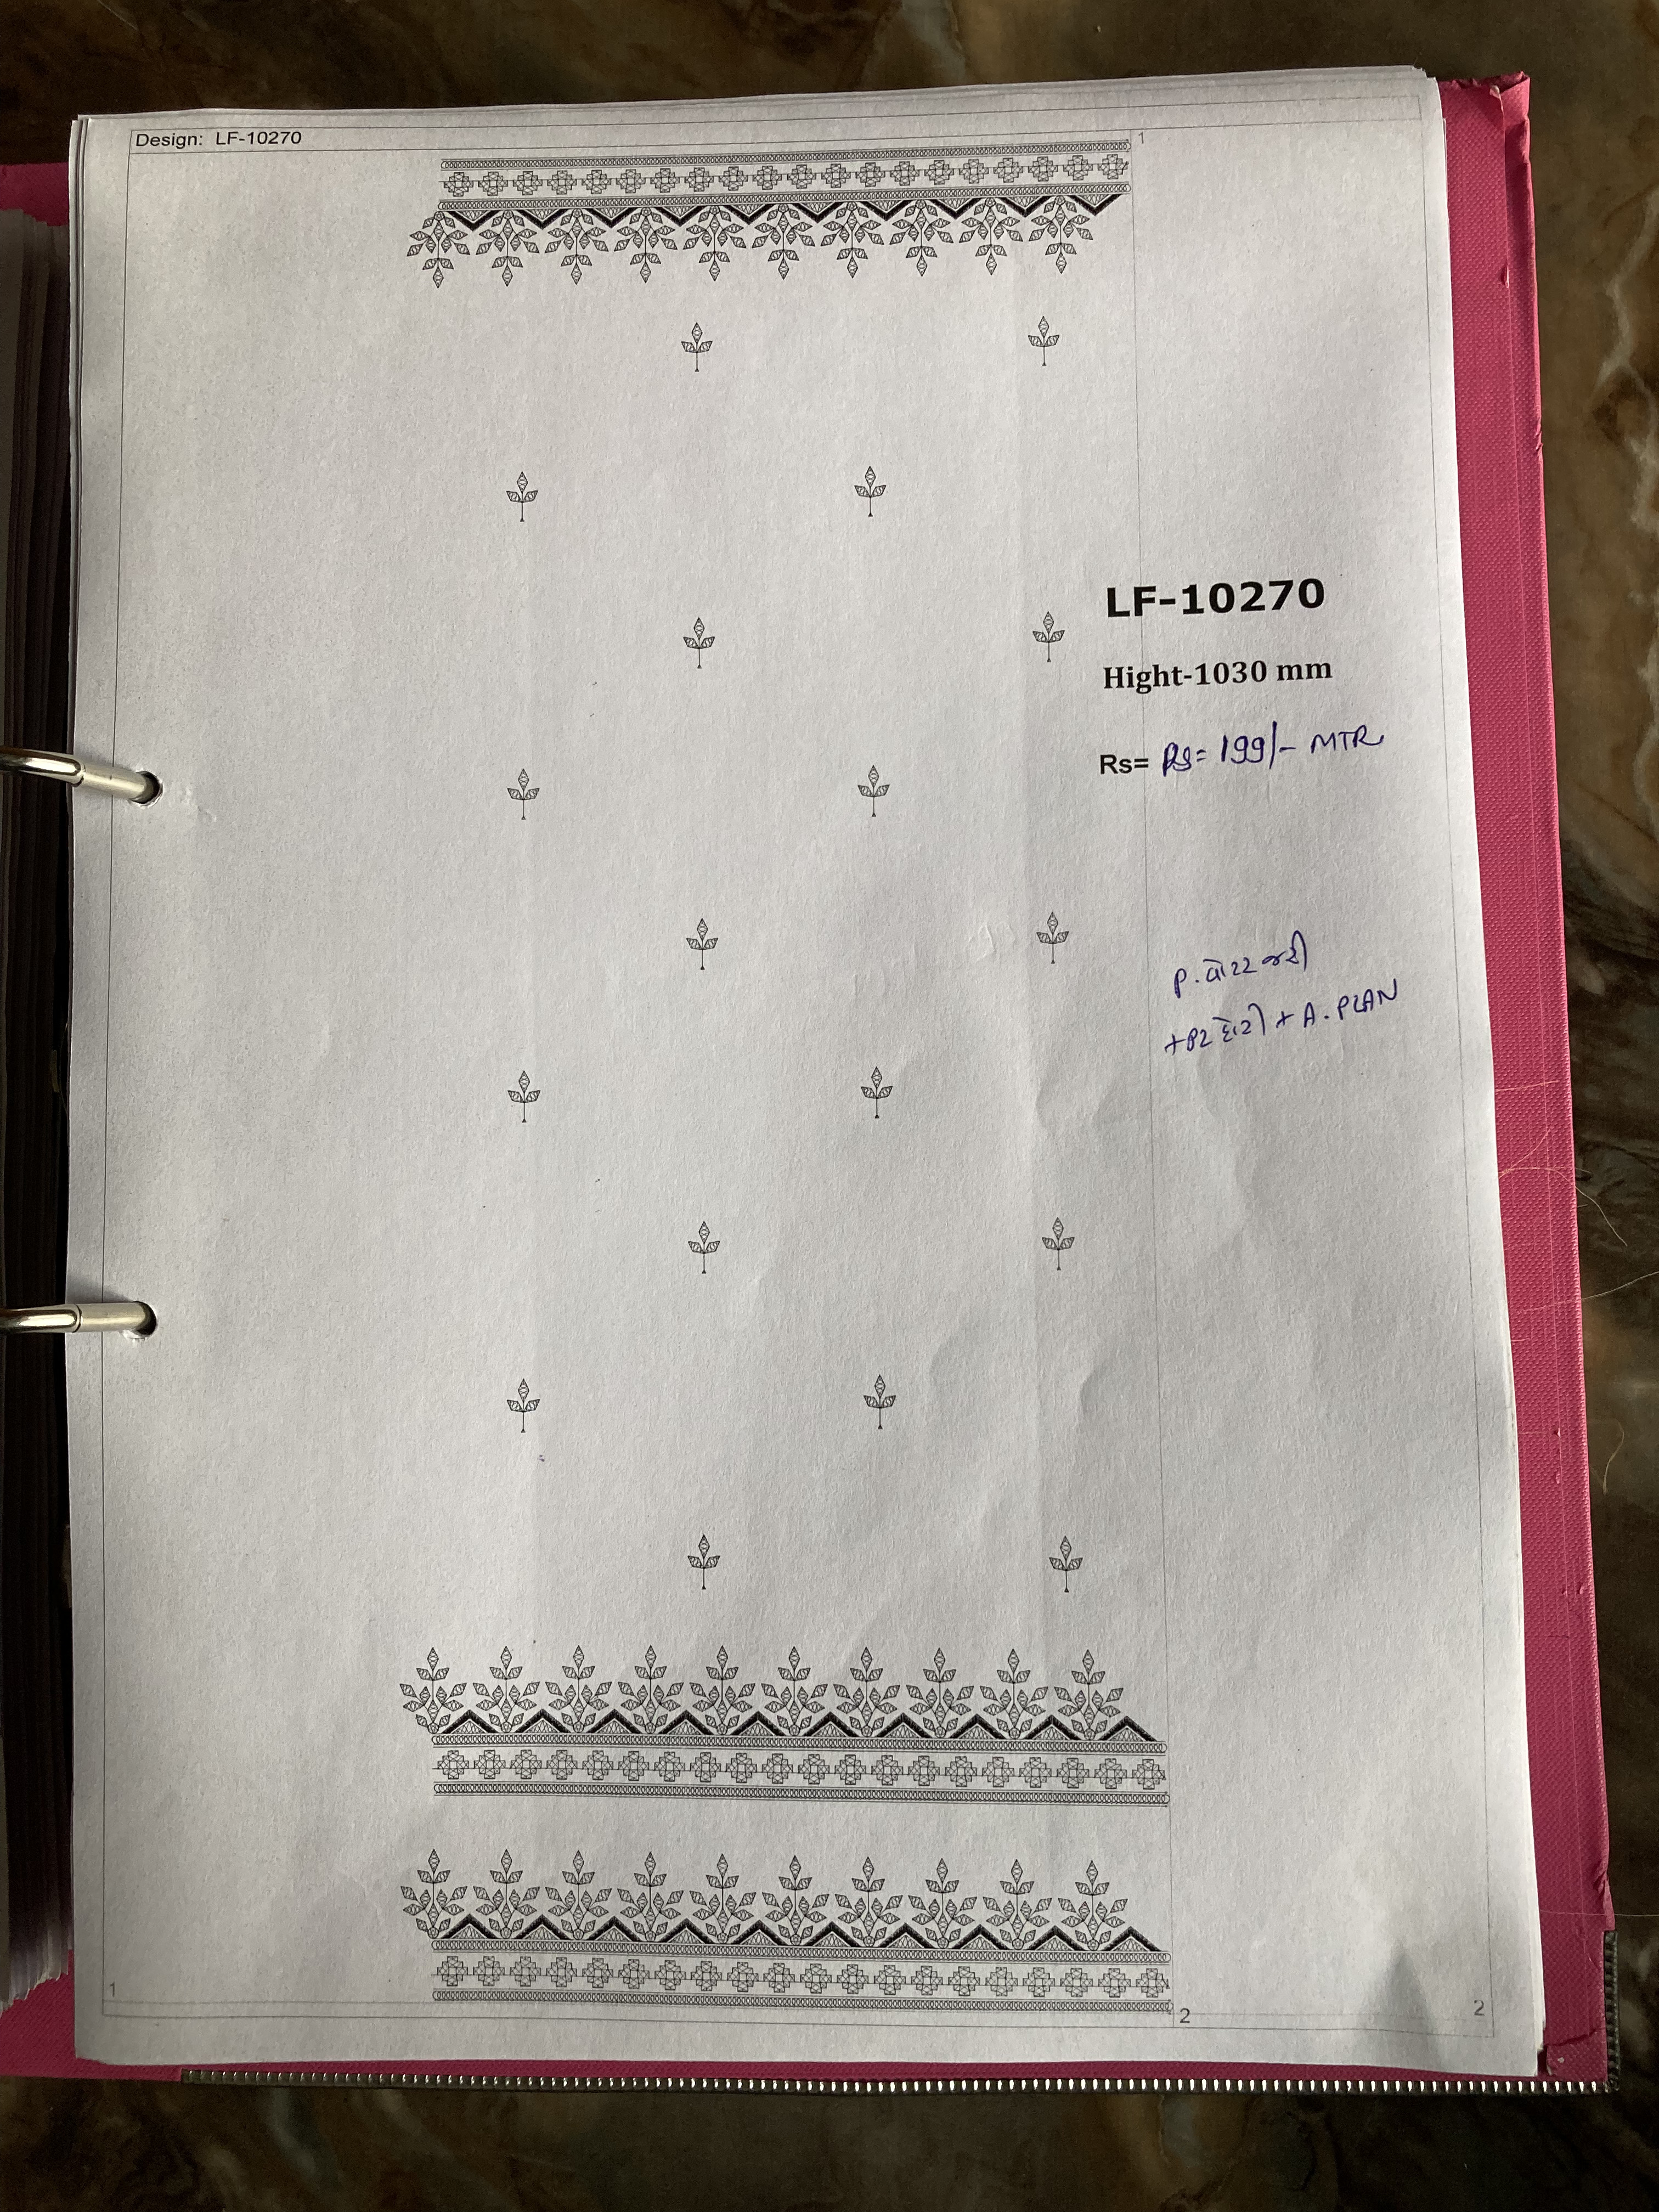 Design: LF-10270
1
LF-10270
Hight-1030 mm
Rs= Rs= 199/- MTR
P. વોટર જરી
+ A. PLAN
1
2
2